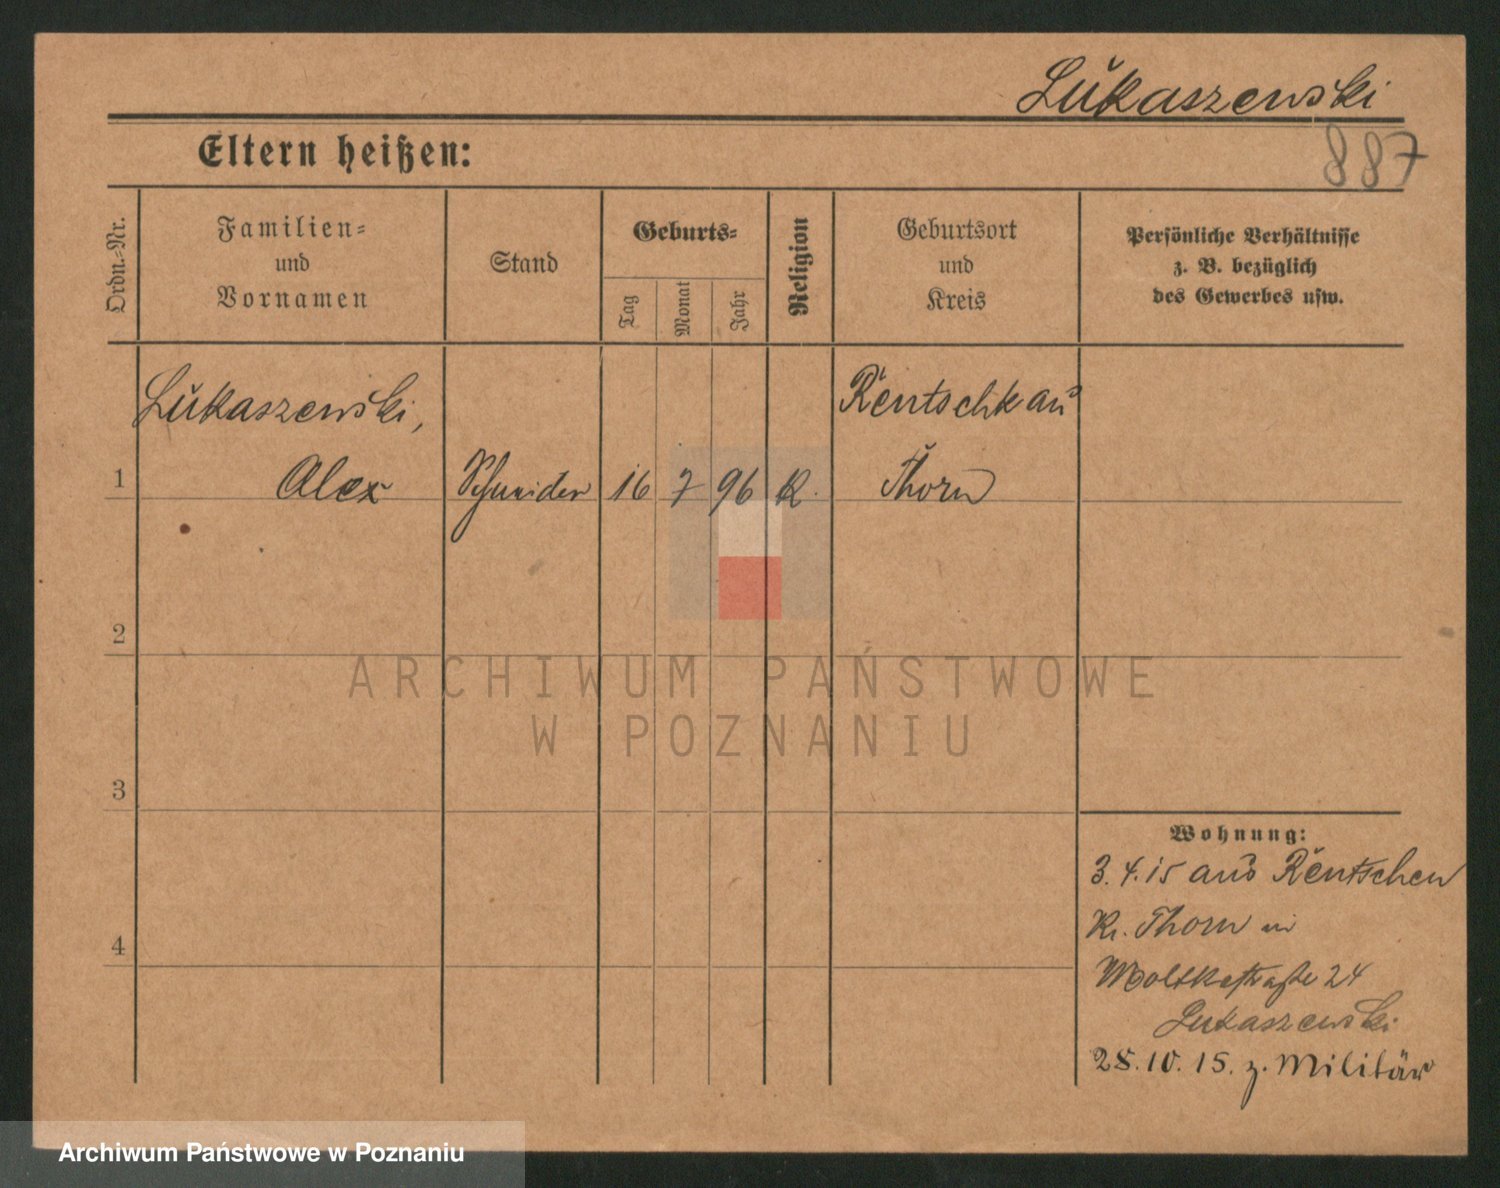 Lukaszewski
887
Eltern heißen:
Ordn.-Nr.
Familien-
und
Vornamen
Stand
Geburts-
Tag
Monat
Jahr
Religion
Geburtsort
und
Kreis
Persönliche Verhältnisse
z. B. bezüglich
des Gewerbes usw.
Lukaszewski,
Rentschkau
1 Alex Schneider 16 7 96 K. Thorn
2
3
4
ARCHIWUM PAŃSTWOWE
W POZNANIU
Wohnung:
3.4.15 aus Rentschen
Kr. Thorn in
Moltkestraße 24
Lukaszewski
28.10.15. z. Militär
Archiwum Państwowe w Poznaniu